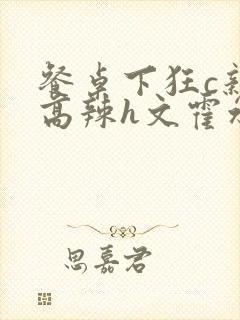 餐桌下狂c新
高辣h文霍水
思嘉君